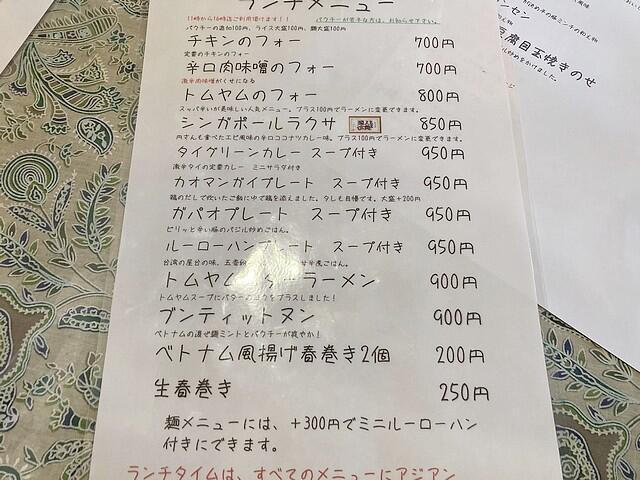 ランチメニュー
11時から16時迄ご利用頂けます!!　パクチーが苦手な方は、お知らせ下さい。
パクチーの追加100円、ライス大盛100円、麺大盛100円
チキンのフォー　700円
定番のチキンのフォー
辛口肉味噌のフォー　700円
激辛肉味噌がくせになる
トムヤムのフォー　800円
スッパ辛いが美味しい人気メニュー。プラス100円でラーメンに変更できます。
シンガポールラクサ　850円
円さんも食べたエビ風味の辛口ココナツカレー味。プラス100円でラーメンに変更できます。
タイグリーンカレー スープ付き　950円
激辛タイの定番カレー　ミニサラダ付き
カオマンガイプレート　スープ付き　950円
鶏のだしで炊いたご飯に中で鶏を添えました。タレも自慢です。大盛+200円
ガパオプレート　スープ付き　950円
ピリッと辛い豚のバジル炒めごはん。
ルーローハンプレート　スープ付き　950円
台湾の屋台の味、五香
トムヤム ラーメン　900円
トムヤムスープにバターのコクをプラスしました!
ブンティットヌン　900円
ベトナムの混ぜ麺ミントとパクチーが爽やか!
ベトナム風揚げ春巻き2個　200円
生春巻き　250円
麺メニューには、+300円でミニルーローハン
付きにできます。
ランチタイムは、すべてのメニューにアジアン
ンセン
腐目玉焼きのせ